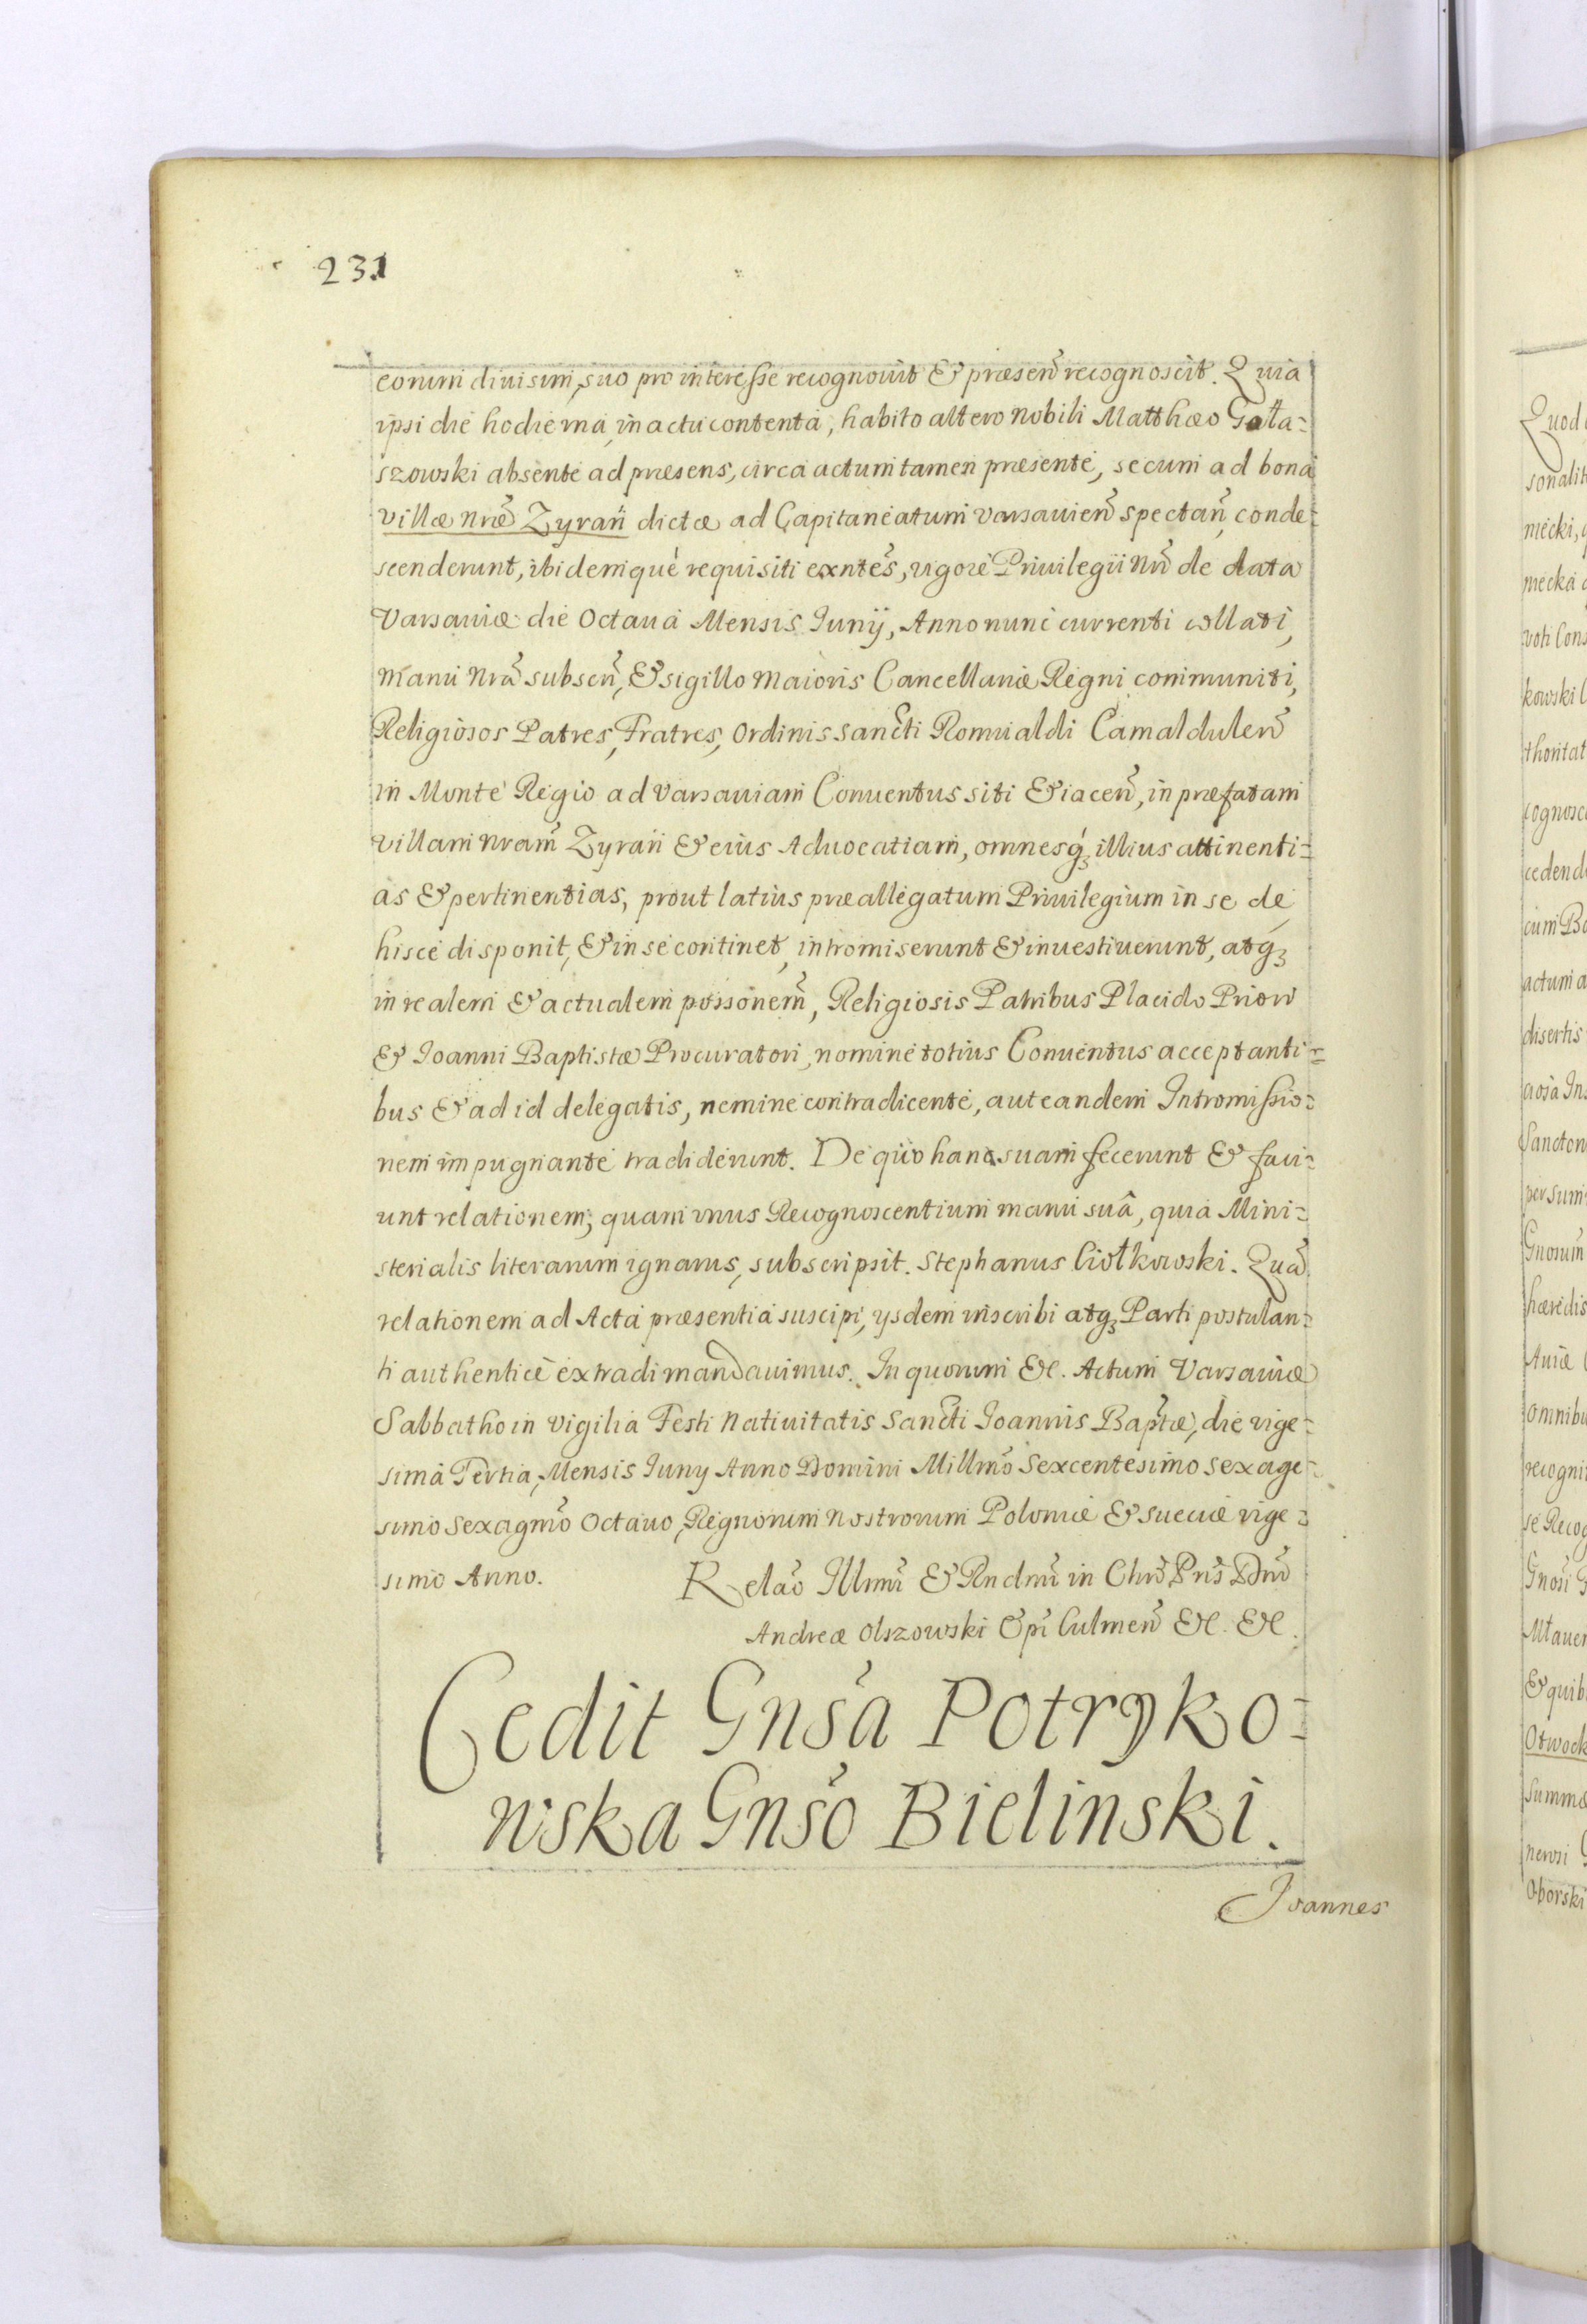 231
eorum diuisim, suo pro interesse recognouit & præsen̄ recognoscit. Quia
ipsi die hodierna, in actu contenta, habito altero nobili Matthæo Goła=
szowski absente ad præsens, circa actum tamen præsente, secum ad bona
villæ nræ Zyrań dictæ ad Capitaneatum varsauien̄ spectan̄, conde=
scenderunt, ibidemque requisiti exntes, vigore Priuilegii nri de data
Varsauiæ die Octaua Mensis Iunij, Anno nunc currenti collati,
manu nra subscn̄, & sigillo maioris Cancellariæ Regni communiti,
Religiosos Patres, Fratres, Ordinis sancti Romualdi Camaldulen̄
in Monte Regio ad varsauiam Conuentus siti & iacen̄, in præfatam
villam nram Zyrań & eius Aduocatiam, omnesq; illius attinenti=
as & pertinentias, prout latius præallegatum Priuilegium in se de
hisce disponit, & in se continet, intromiserunt & inuestiuerunt, atq;
in realem & actualem possonem, Religiosis Patribus Placido Priori
& Joanni Baptistæ Procuratori, nomine totius Conuentus acceptanti=
bus & ad id delegatis, nemine contradicente, aut eandem Intromissio=
nem impugnante tradiderunt. De quo hanc suam fecerunt & faci=
unt relationem; quam vnus Recognoscentium manu suâ, quia Mini=
sterialis literarum ignarus, subscripsit. Stephanus Ciołkowski. Quā
relationem ad Acta præsentia suscipi, ysdem inscribi atq; Parti postulan=
ti authentice extradi mandauimus. In quorum &c. Actum Varsauiæ
Sabbatho in vigilia Festi Natiuitatis Sancti Joannis Baptæ, die vige=
sima Tertia, Mensis Iuny Anno Domini Millmo Sexcentesimo sexage=
simo sexagmo Octauo, Regnorum nostrorum Poloniæ & Sueciæ vige=
simo Anno.
Relao Illmi & Rndmi in Chro Pris Dni
Andreæ Olszowski Epi Culmen̄ &c. &c.
Cedit Gnsa Potryko=
wska Gnso Bielinski.
Joannes